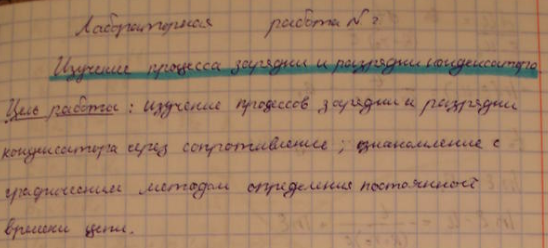 Лабораторная работа № 2.
Изучение процесса зарядки и разрядки конденсатора
Цель работы: изучение процессов зарядки и разрядки
конденсатора через сопротивление; ознакомление с
графическим методом определения постоянной
времени цепи.